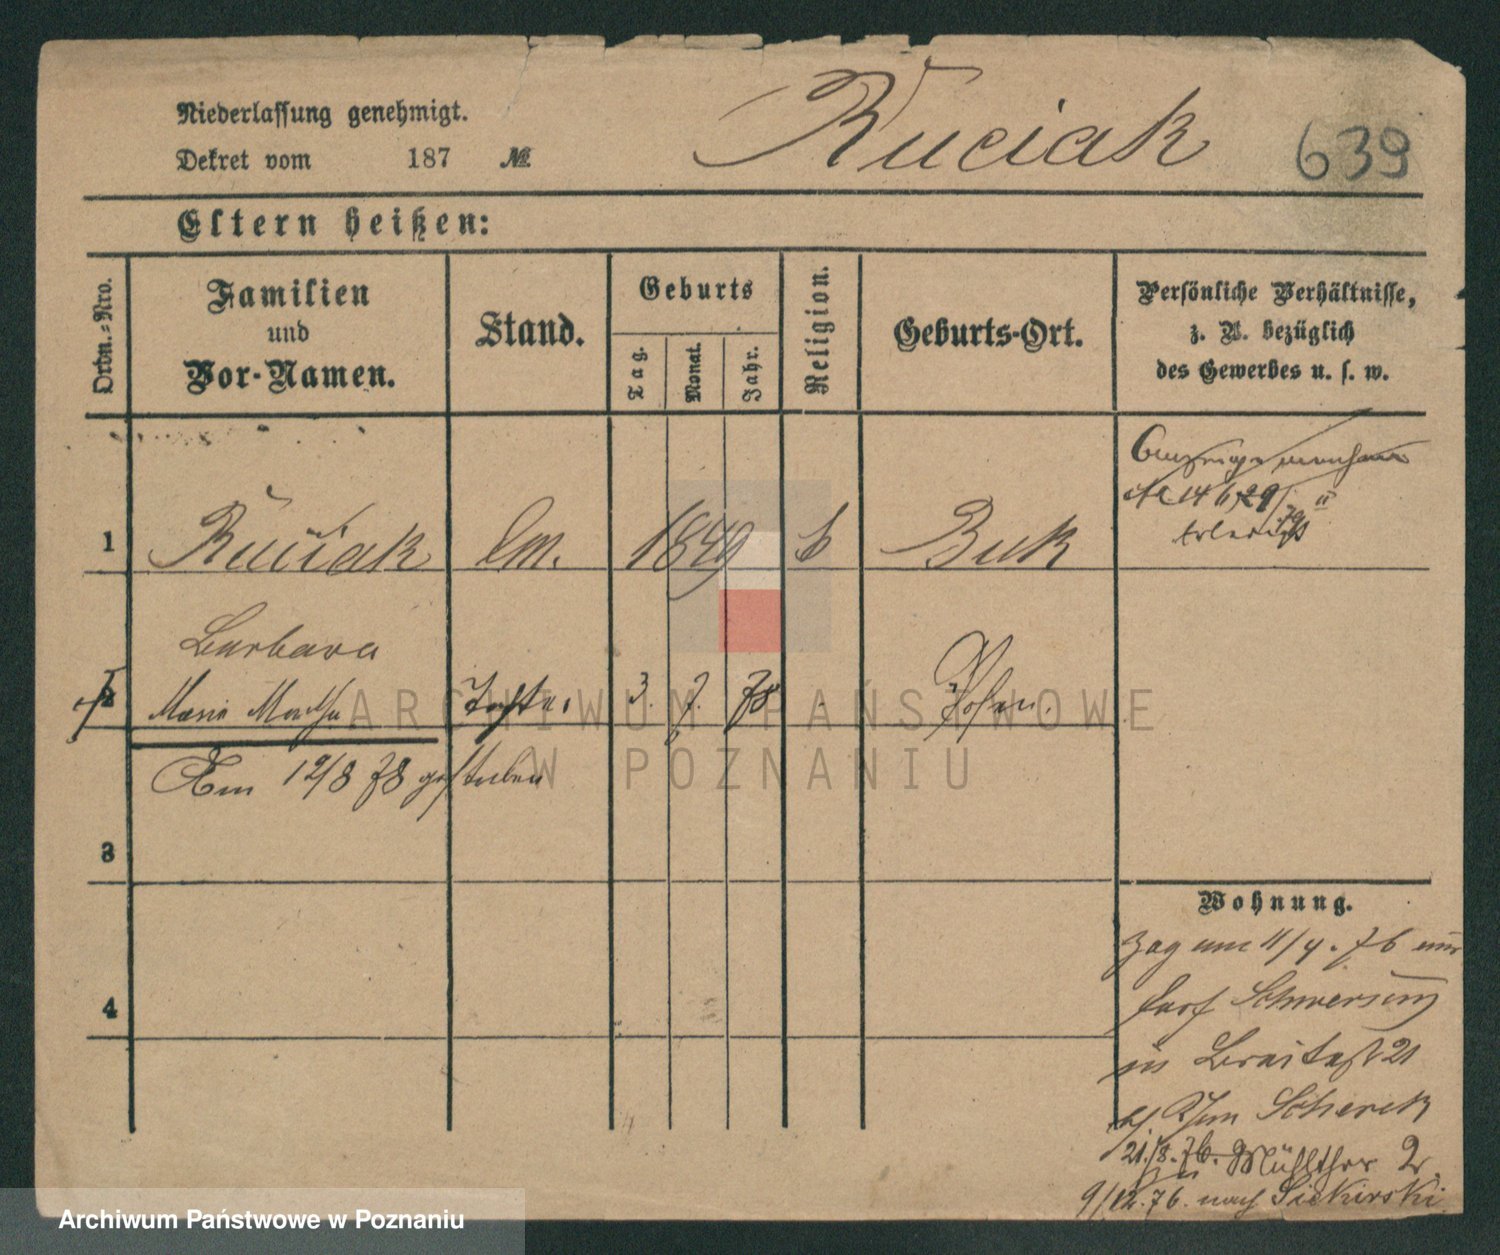 Niederlassung genehmigt.
Dekret vom 187 №
Ruciak
639
Eltern heißen:
Ordn.-Nro.
Familien
und
Vor-Namen.
Stand.
Geburts
Tag.
Monat.
Jahr.
Religion.
Geburts-Ort.
Persönliche Verhältnisse,
z. B. bezüglich
des Gewerbes u. s. w.
1
Ruciak
1849
Buk
Barbara
2
Maria Martha
Tochter
3. 7. 78
Posen.
Am 12/8 78 gestorben
3
4
Wohnung.
Zog am 11/4. 76 aus
Schwersenz
in Breitestr 21
b/ Schereck
21./8. 76. Mühlthor 2.
9/12. 76. nach Siekierski
ARCHIWUM PAŃSTWOWE
W POZNANIU
Archiwum Państwowe w Poznaniu